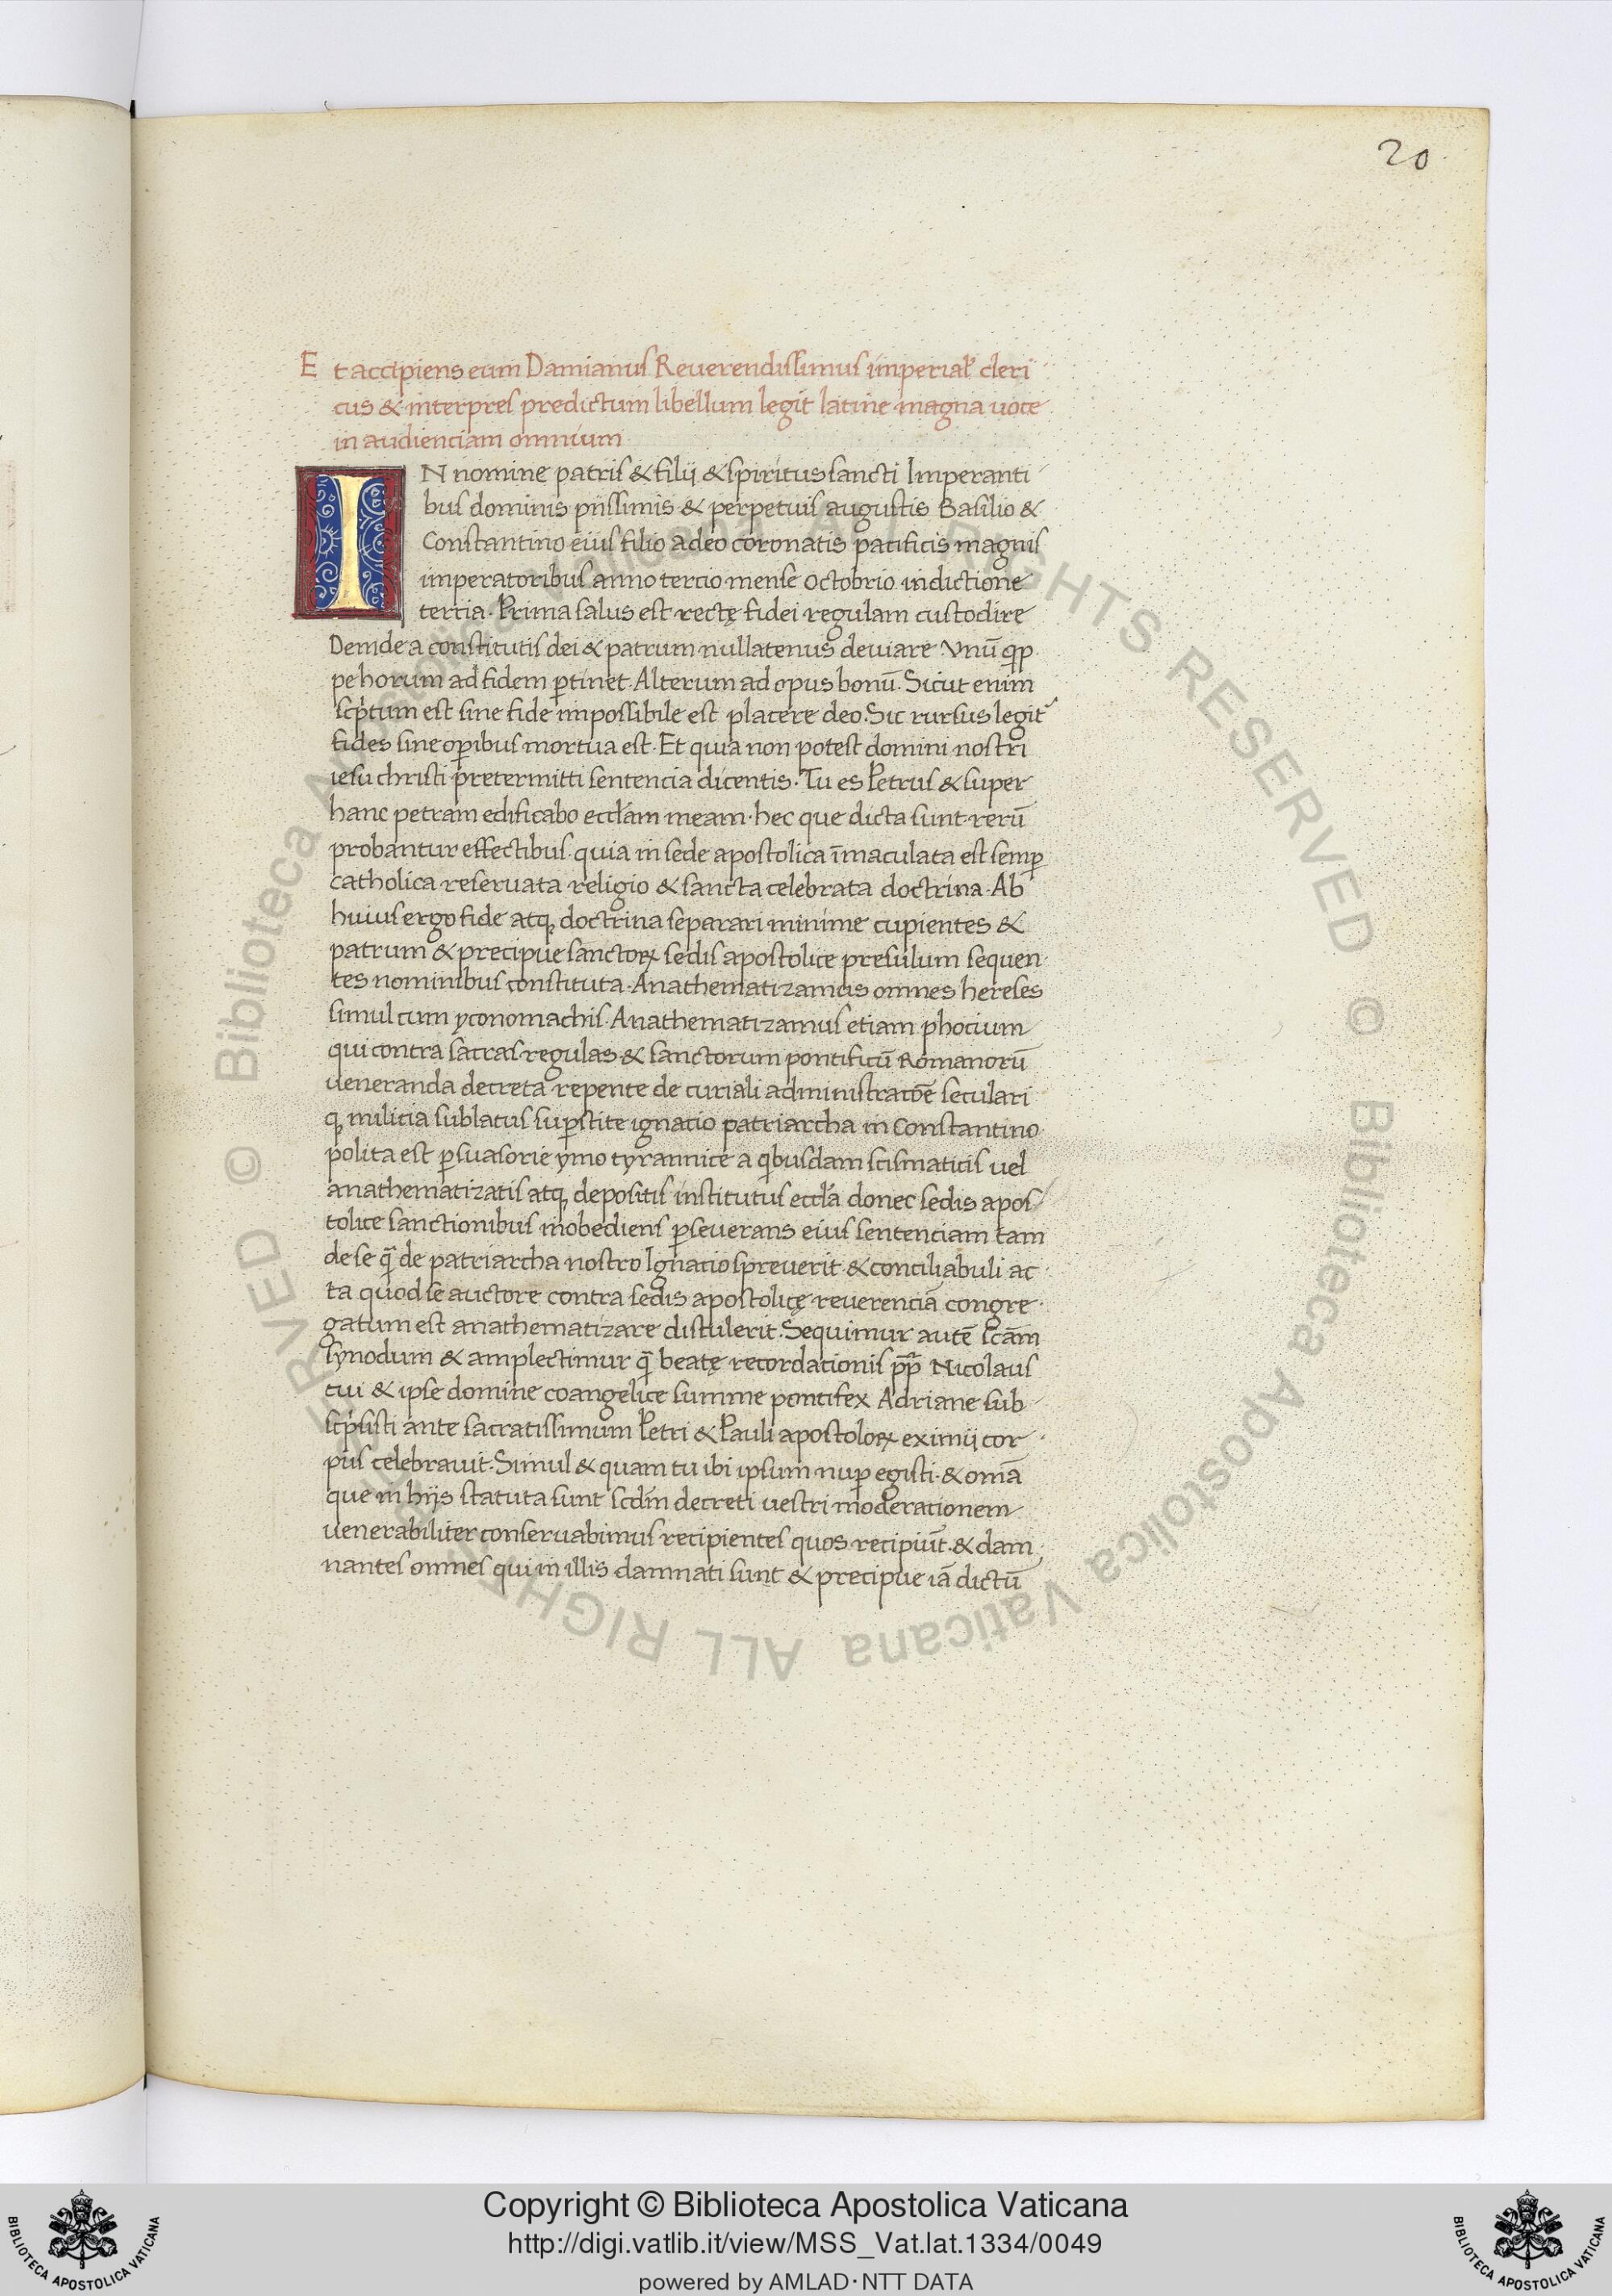 20
Et accipiens eum Damianus Reverendissimus imperial' cleri
cus & interpres predictum libellum legit latine magna uoce
in audienciam omnium
IN nomine patris & filij & spiritus sancti Imperanti
bus dominis piissimis & perpetuis augustis Basilio &
Constantino eius filio a deo coronatis pacificis magnis
imperatoribus anno tercio mense octobrio indictione
tercia. Prima salus est rectę fidei regulam custodire
Deinde a constitutis dei & patrum nullatenus deuiare Vnū qip
pe horum ad fidem ꝑtinet. Alterum ad opus bonū. Sicut enim
scptum est sine fide impossibile est placere deo. Sic rursus legit'
fides sine oꝑibus mortua est. Et quia non potest domini nostri
iesu christi pretermitti sentencia dicentis. Tu es Petrus & super
hanc petram edificabo eccl'am meam. hec que dicta sunt rerū
probantur effectibus. quia in sede apostolica īmaculata est semꝑ
catholica reseruata religio & sancta celebrata doctrina. Ab
huius ergo fide atq; doctrina separari minime cupientes &
patrum & precipue sanctoꝝ sedis apostolice presulum sequen
tes nominibus constituta. Anathematizamus omnes hereses
simul cum yconomachis. Anathematizamus etiam phocium
qui contra sacras regulas & sanctorum pontificū Romanorū
ueneranda decreta repente de curiali administracōe seculari
q; milicia sublatus suꝑstite ignacio patriarcha in Constantino
polita est ꝑsuasorie ymo tyrannice a qbusdam scismaticis uel
anathematizatis atq; depositis institutus eccl'a donec sedis apos
tolice sanctionibus inobediens ꝑseuerans eius sentenciam tam
de se q̄ de patriarcha nostro Ignacio spreuerit & conciliabuli ac
ta quod se auctore contra sedis apostolicę reuerenciā congre
gatum est anathematizare distulerit. Sequimur autē scām
synodum & amplectimur q̄ beatę recordacionis pp̄ Nicolaus
cui & ipse domine coangelice summe pontifex Adriane sub
scpsisti ante sacratissimum Petri & Pauli apostoloꝝ eximij cor
pus celebrauit. Simul & quam tu ibi ipsum nuꝑ egisti. & omā
que in hijs statuta sunt scdm decreti uestri moderationem
uenerabiliter conseruabimus recipientes quos recipiūt. & dam
nantes omnes qui in illis damnati sunt & precipue iā dictū
© Biblioteca Apostolica Vaticana ALL RIGHTS RESERVED
© Biblioteca Apostolica Vaticana ALL RIGHTS RESERVED
BIBLIOTECA APOSTOLICA VATICANA
Copyright © Biblioteca Apostolica Vaticana
http://digi.vatlib.it/view/MSS_Vat.lat.1334/0049
powered by AMLAD・NTT DATA
BIBLIOTECA APOSTOLICA VATICANA